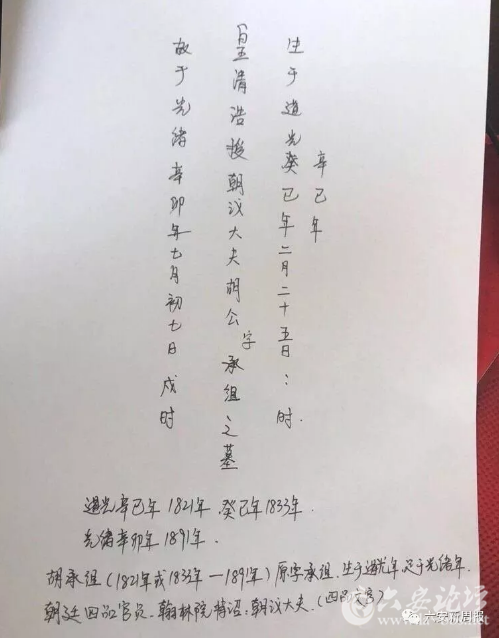 辛巳年
生于道光癸巳年二月二十五日:时.
皇清浩授朝议大夫胡公字承组之墓
故于光绪辛卯年七月初七日戌时
道光辛巳年1821年.癸巳年1833年.
光绪辛卯年1891年.
胡承组(1821年或1833年—1891年)原字承组.生于道光年.死于光绪年.
朝廷四品官员.翰林院特诏.朝议大夫.(四品文官)
六安论坛
六安新周报